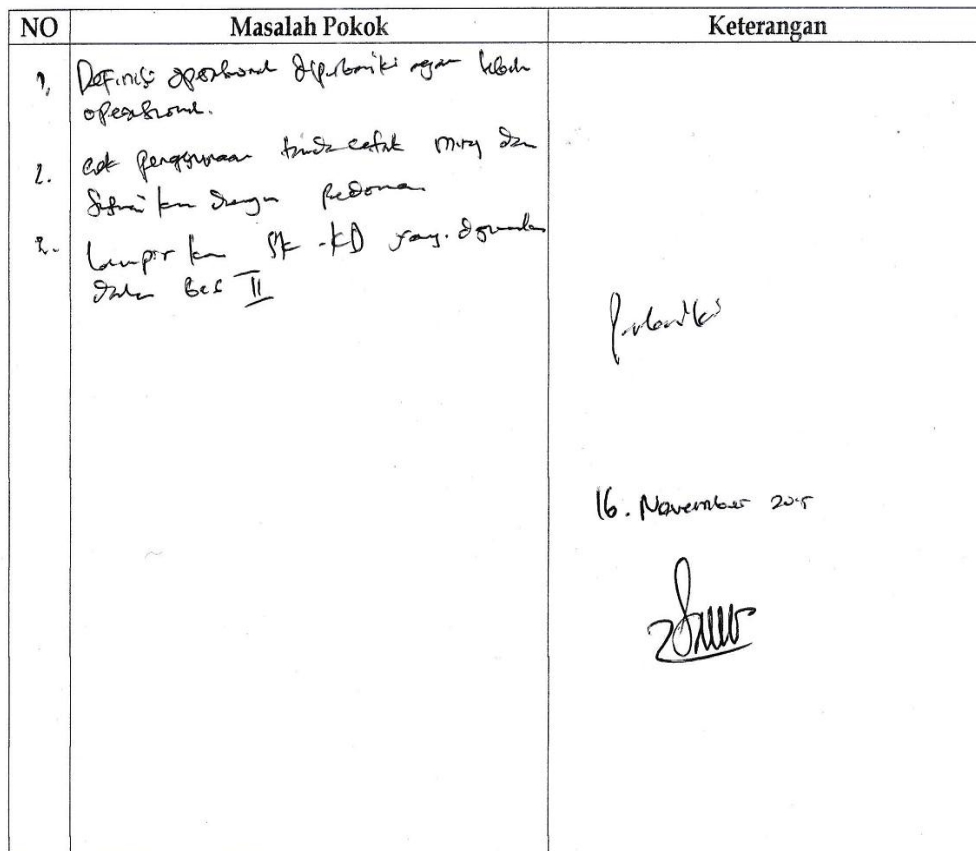 NO Masalah Pokok Keterangan
1, Definisi operasional diperbaiki agar lebih
operasional.
2. cek penggunaan tanda cetak miring dan
sesuaikan dengan pedoman
3. Lampirkan SK-KD yang digunakan
dalam Bab II
Perbaiki
16. November 2015